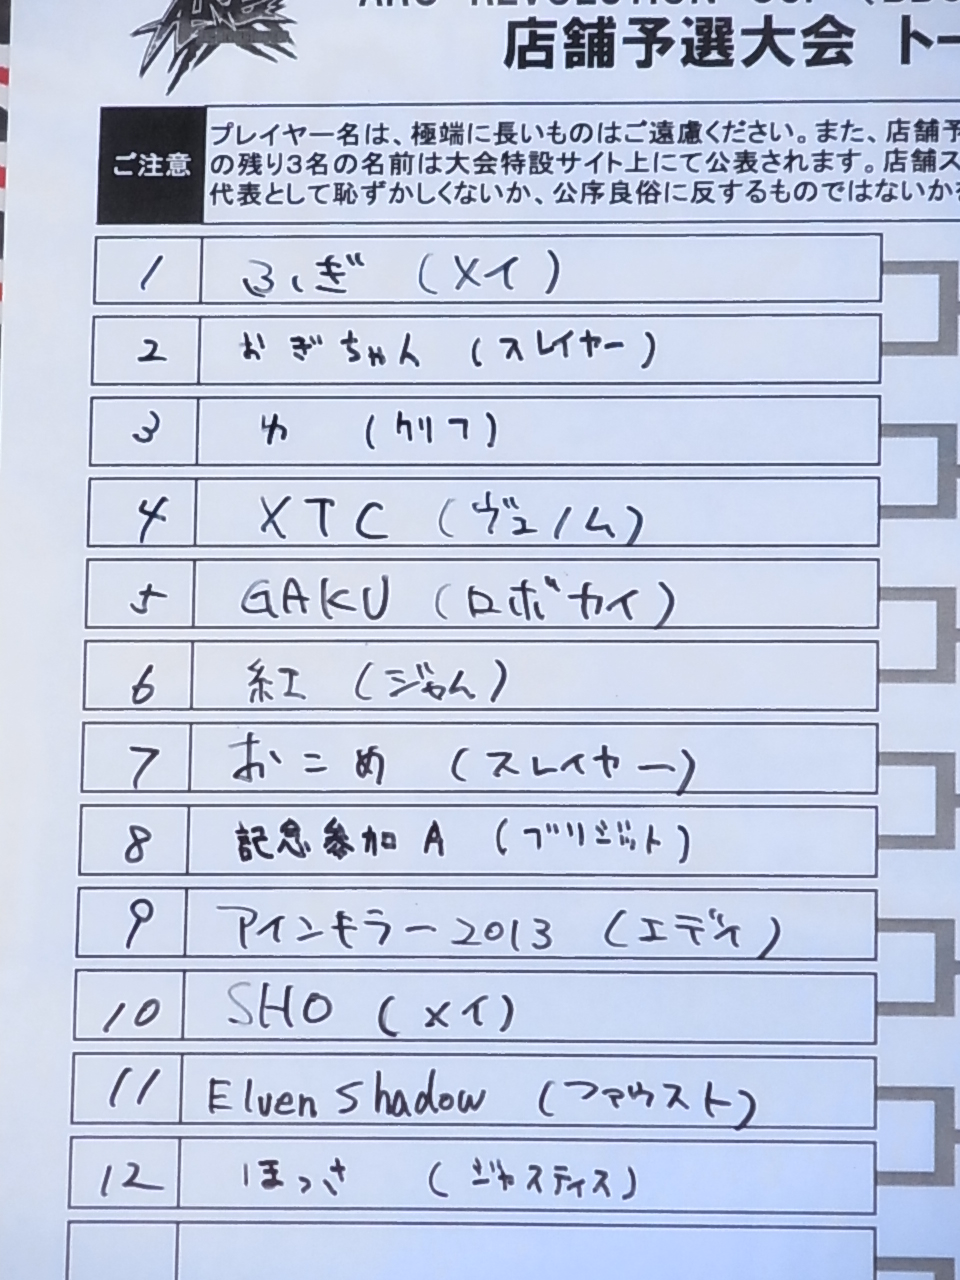 店舗予選大会 トー
ご注意
プレイヤー名は、極端に長いものはご遠慮ください。また、店舗予
の残り3名の名前は大会特設サイト上にて公表されます。店舗ス
代表として恥ずかしくないか、公序良俗に反するものではないかを
1 ふぎ (メイ)
2 おぎちゃん (スレイヤー)
3 カ (クリフ)
4 XTC (ヴェノム)
5 GAKU (ロボカイ)
6 紅 (ジャム)
7 おこめ (スレイヤー)
8 記念参加A (ブリジット)
9 アインキラー2013 (エディ)
10 SHO (メイ)
11 Elven Shadow (ファウスト)
12 ほっさ (ジャスティス)